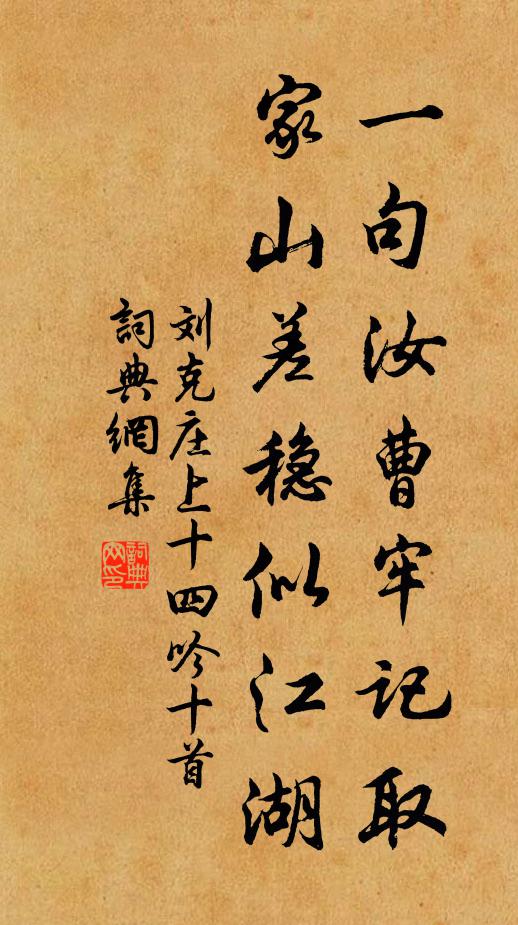 一句汝曹牢记取
家山差稳似江湖
刘克庄上十四吟十首
詞典網集
詞典
网印